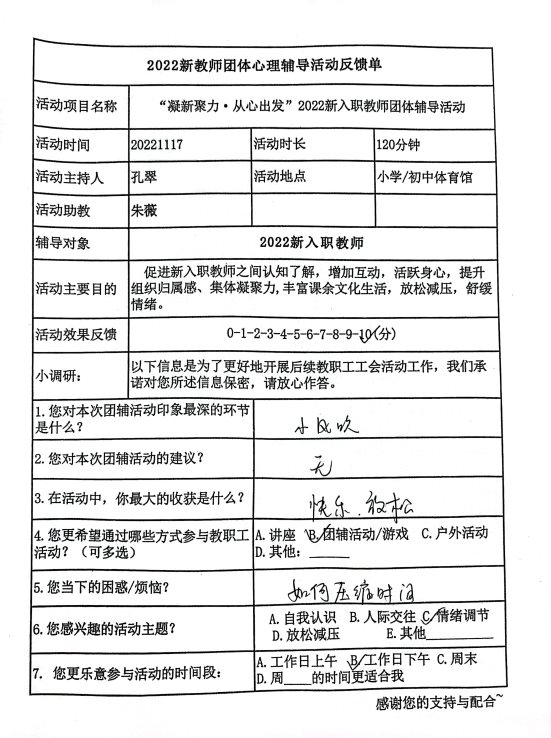 2022新教师团体心理辅导活动反馈单
活动项目名称 “凝新聚力·从心出发”2022新入职教师团体辅导活动
活动时间 20221117 活动时长 120分钟
活动主持人 孔翠 活动地点 小学/初中体育馆
活动助教 朱薇
辅导对象 2022新入职教师
活动主要目的 促进新入职教师之间认知了解，增加互动，活跃身心，提升
组织归属感、集体凝聚力,丰富课余文化生活，放松减压，舒缓
情绪。
活动效果反馈 0-1-2-3-4-5-6-7-8-9-10(分)
小调研： 以下信息是为了更好地开展后续教职工工会活动工作，我们承
诺对您所述信息保密，请放心作答。
1.您对本次团辅活动印象最深的环节
是什么？ 小风吹
2.您对本次团辅活动的建议？ 无
3.在活动中，你最大的收获是什么？ 快乐.放松
4.您更希望通过哪些方式参与教职工
活动？（可多选） A.讲座 B.团辅活动/游戏 C.户外活动
D.其他：______
5.您当下的困惑/烦恼？ 如何压缩时间
6.您感兴趣的活动主题？ A.自我认识 B.人际交往 C.情绪调节
D.放松减压 E.其他__________
7. 您更乐意参与活动的时间段： A.工作日上午 B.工作日下午 C.周末
D.周____的时间更适合我
感谢您的支持与配合~